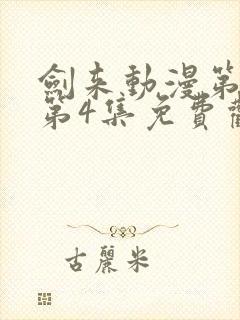 劍来動漫第
第4集免費
古麗米